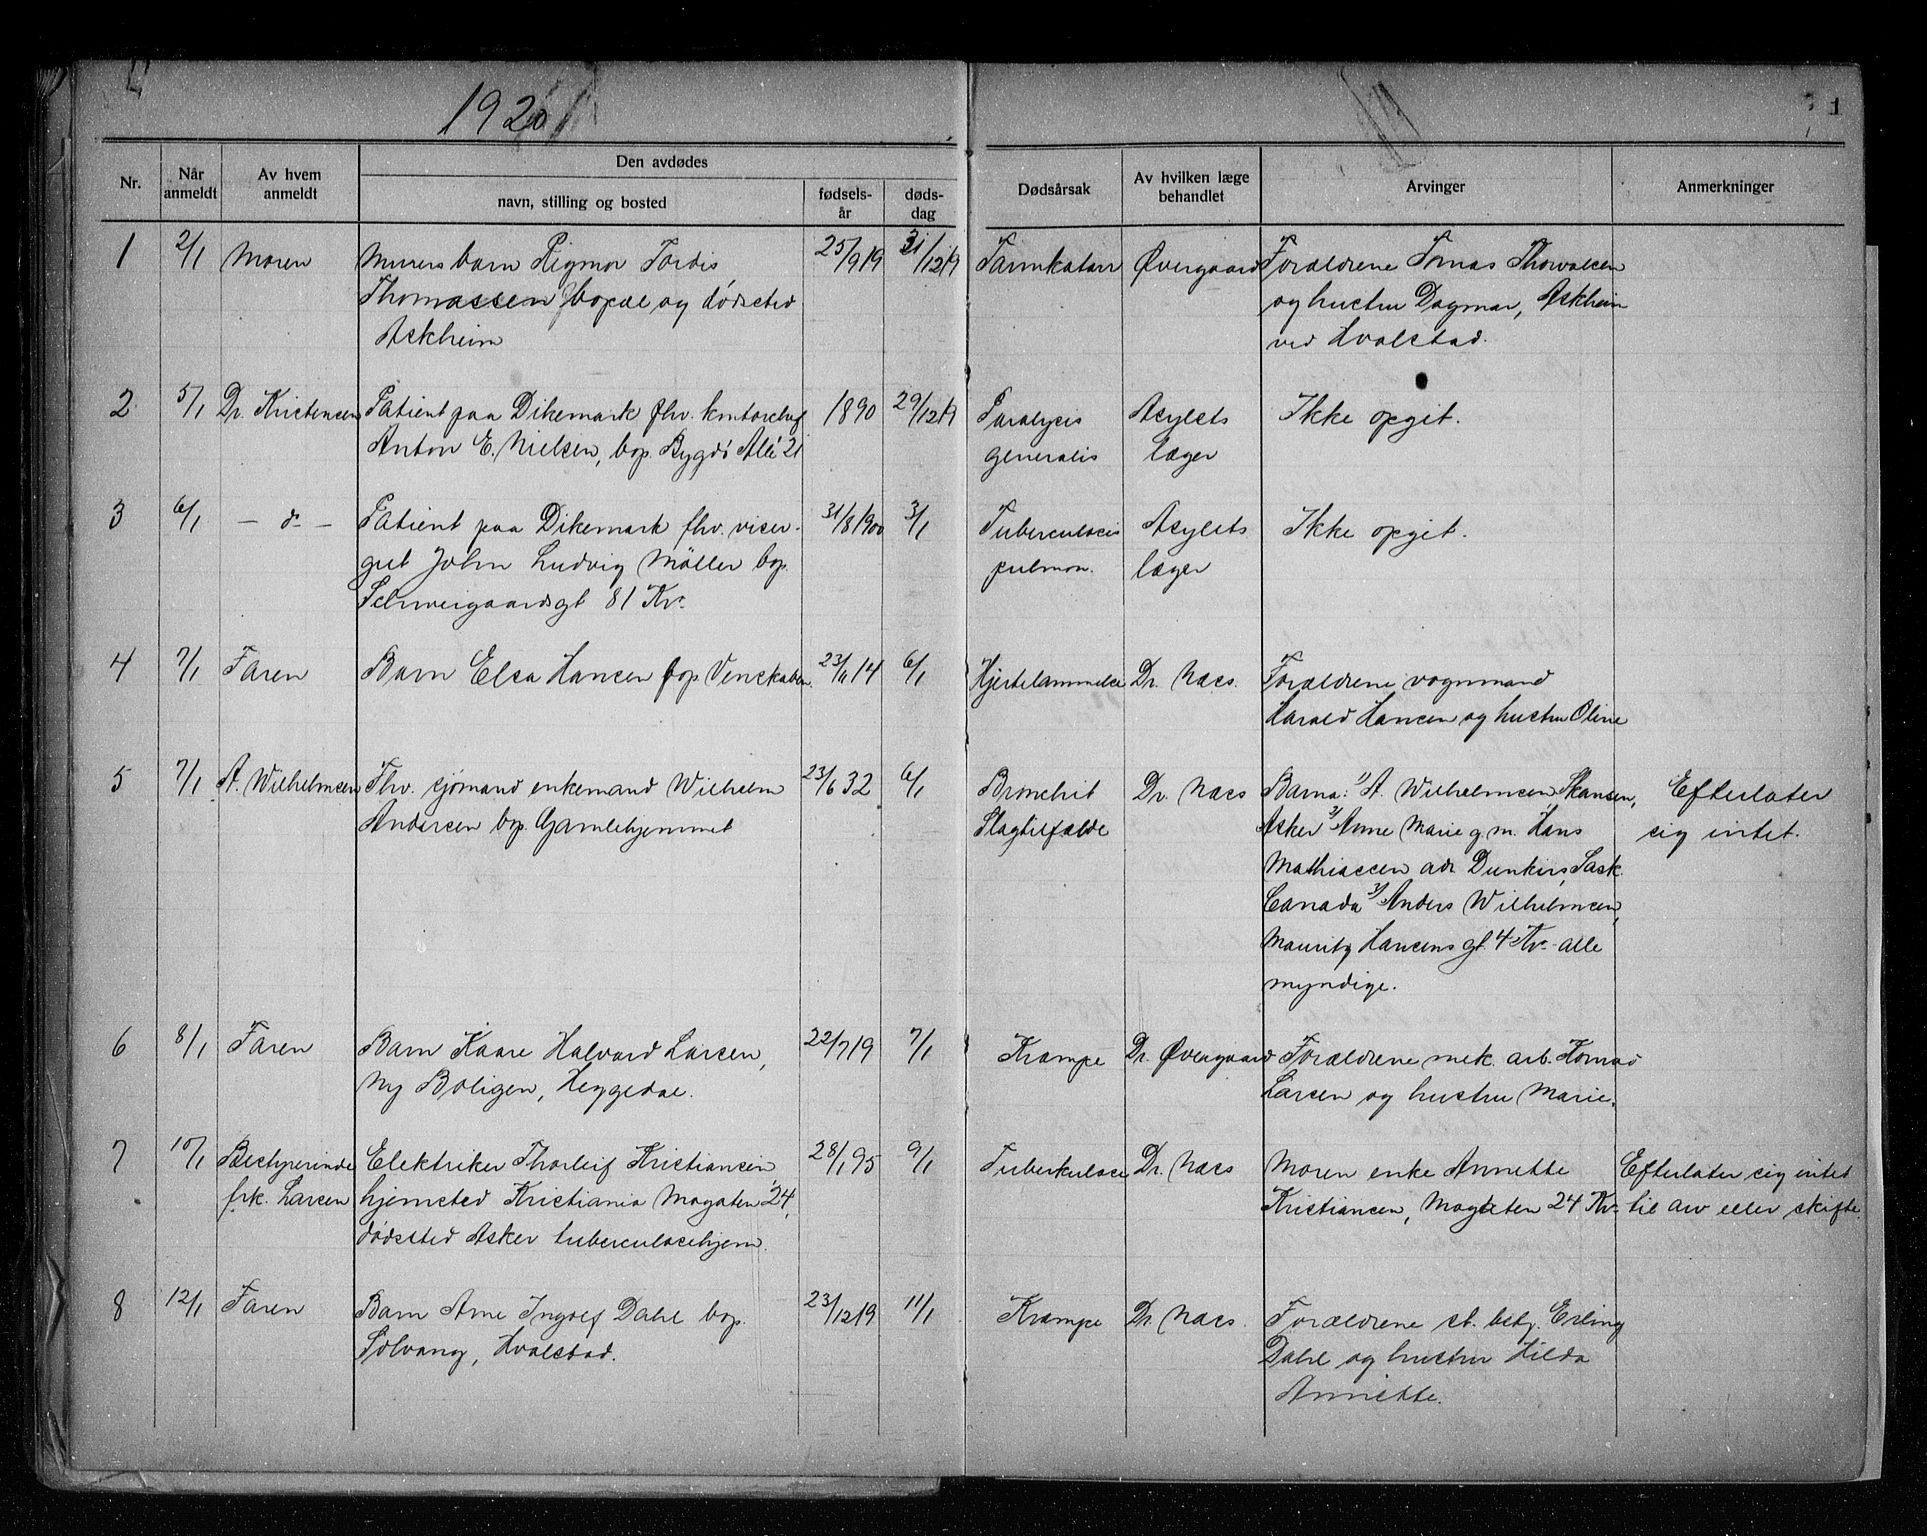 1920
1
Nr.
Når anmeldt
Av hvem anmeldt
Den avdødes
navn, stilling og bosted
fødsels-år
døds-dag
Dødsårsak
Av hvilken læge behandlet
Arvinger
Anmerkninger
1 2/1 Moren Murers barn Rigmor Tordis 25/9 19 31/12 19 Tarmkatarr Øvergaard Forældrene Tomas Thorvalsen
Thomassen bopæl og dødssted og hustru Dagmar, Askheim
Askheim ved Hvalstad.
2 5/1 Dr. Kristensen Patient paa Dikemark fhv. kontorchef 1890 29/12 19 Paralysis Asylets Ikke opgit.
Anton E. Nielsen, bop. Bygdö Allé 21 generalis læger
3 6/1 – do – Patient paa Dikemark fhv. viser- 31/8 1900 3/1 Tuberculosis Asylets Ikke opgit.
gut John Ludvig Møller bop. pulmon. læger
Schweigaardsgt 81 Kr.
4 7/1 Faren Barn Elsa Hansen bop. Venskaben. 23/11 14 6/1 Hjertelammelse Dr. Næs. Forældrene vognmand
Harald Hansen og hustru Oline
5 7/1 A. Wilhelmsen Fhv. sjømand enkemand Wilhelm 23/6 32 6/1 Bronchit Dr. Næs Barna: 1/ A. Wilhelmsen, Skansen, Efterlater
Andersen bop. Gamlehjemmet Slagtilfælde Asker 2/ Anne Marie g. m. Hans sig intet.
Mathiassen adr. Dunkirs, Sask.
Canada 3/ Anders Wilhelmsen,
Mauritz Hansens gt. 4 Kr. alle
myndige.
6 8/1 Faren Barn Kaare Halvard Larsen, 22/7 19 7/1 Krampe Dr. Øvergaard Forældrene mek. arb. Konrad
Ny Boligen, Heggedal. Larsen og hustru Marie.
7 10/1 Bestyrerinde Elektriker Thorleif Kristiansen 28/1 95 9/1 Tuberkulose Dr. Næs Moren enke Annette Efterlater sig intet
frk. Larsen hjemsted Kristiania Maxgaten 24, Kristiansen, Maxgaten 24 Kr. til arv eller skifte.
dødssted Asker tuberculosehjem.
8 12/1 Faren Barn Arne Ingolf Dahl bop. 23/12 19 11/1 Krampe Dr. Næs. Forældrene st. betj. Erling
Solvang, Hvalstad. Dahl og hustru Hilda
Annette.